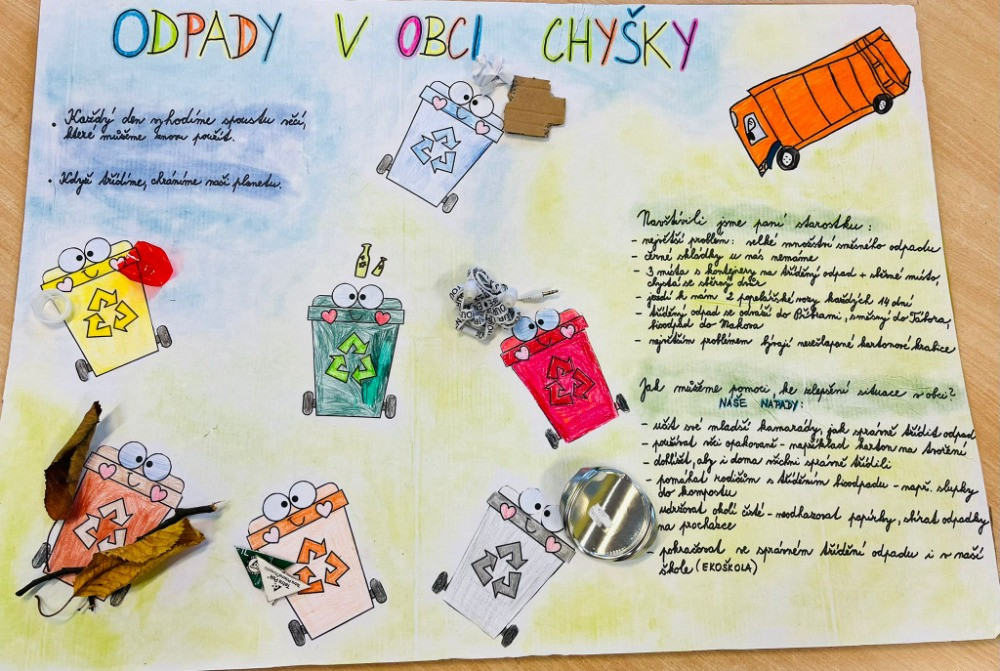 ODPADY V OBCI CHYŠKY
• Každý den vyhodíme spoustu věcí,
které můžeme znovu použít.
• Když třídíme, chráníme naši planetu.
Navštívili jsme paní starostku:
- největší problém: velké množství směsného odpadu
- černé skládky u nás nemáme
- 3 místa s kontejnery na tříděný odpad + sběrné místo,
chystá se sběrný dvůr
- jezdí k nám 2 popelářské vozy každých 14 dní
- tříděný odpad se odváží do Příbrami, směsný do Tábora,
bioodpad do Makova
- největším problémem bývají nesešlapané kartonové krabice
Jak můžeme pomoci ke zlepšení situace v obci?
NAŠE NÁPADY:
- učit své mladší kamarády, jak správně třídit odpad
- používat věci opakovaně - například karton na tvoření
- dohlížet, aby i doma všichni správně třídili
- pomáhat rodičům s tříděním bioodpadu - např. slupky
do kompostu
- udržovat okolí čisté - neodhazovat papírky, sbírat odpadky
na procházce
- pokračovat ve správném třídění odpadu i v naší
škole (EKOŠKOLA)
Tetra Pak